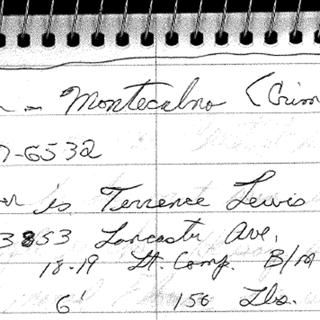 - Montecalvo (Crim
7-6532
is Terrence Lewis
3853 Lancastr Ave,
18-19 Lt. Comp. B/M
6' 156 Lbs.